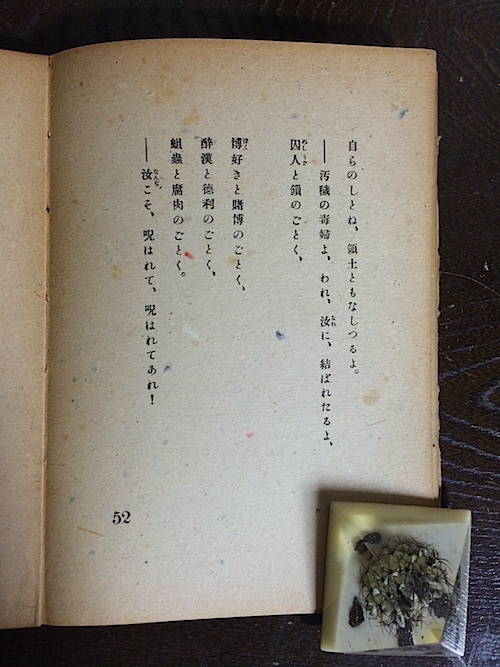 自らのしとね、領土ともなしつるよ。
――汚穢の毒婦よ、われ、汝に、結ばれたるよ、
囚人と鎖のごとく、
博好きと賭博のごとく、
酔漢と徳利のごとく、
蛆蟲と腐肉のごとく。
――汝こそ、呪はれて、呪はれてあれ！
52